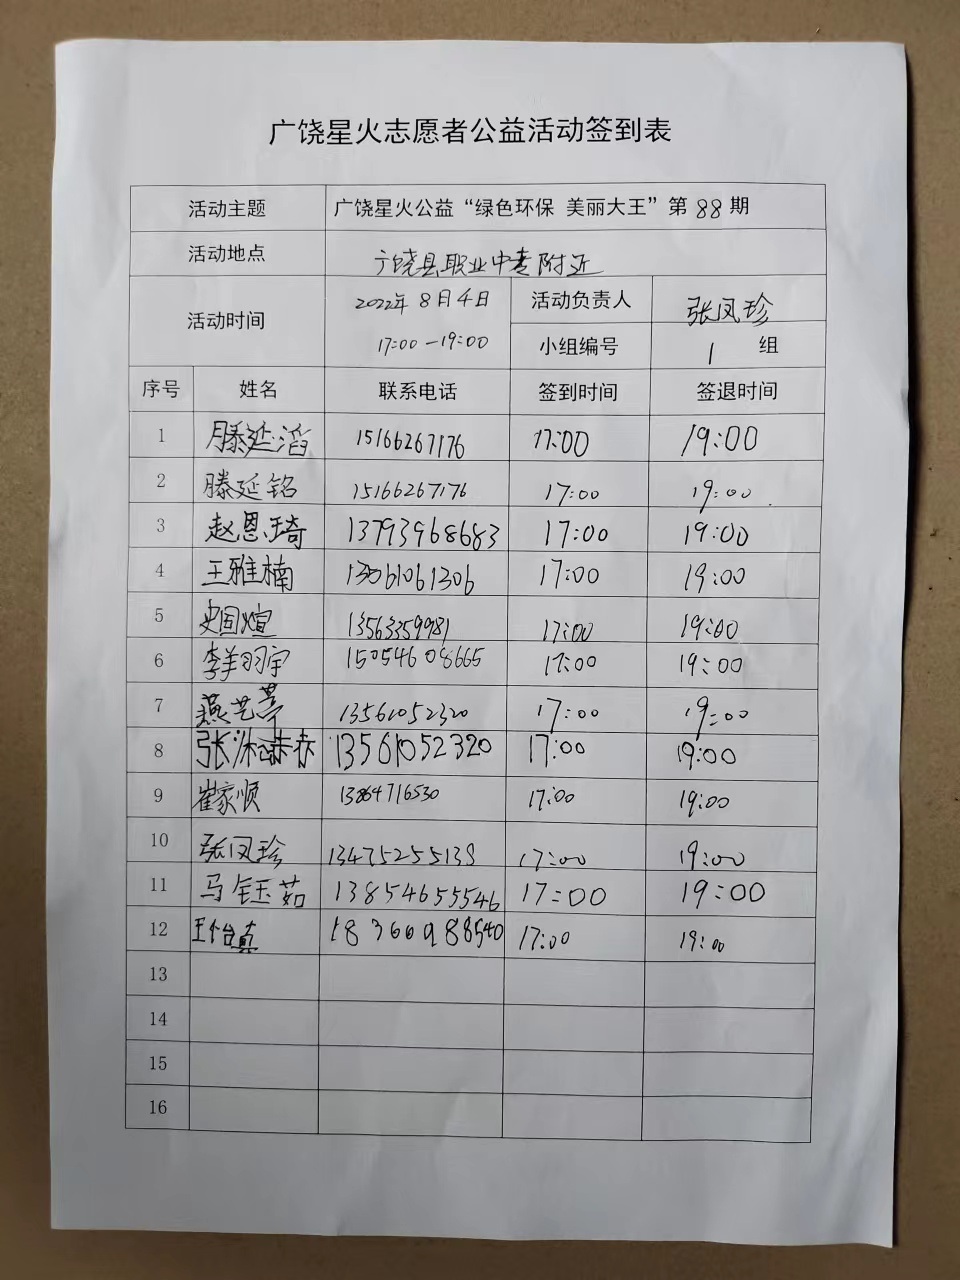 广饶星火志愿者公益活动签到表
活动主题 广饶星火公益“绿色环保 美丽大王”第 88 期
活动地点 广饶县职业中专附近
活动时间 2022年8月4日 17:00-19:00 活动负责人 张凤珍
小组编号 1 组
序号 姓名 联系电话 签到时间 签退时间
1 滕延滔 15166267176 17:00 19:00
2 滕延铭 15166267176 17:00 19:00
3 赵恩琦 13793968683 17:00 19:00
4 王雅楠 13061061306 17:00 19:00
5 史国煊 13563359981 17:00 19:00
6 李羊羽宇 15054608665 17:00 19:00
7 燕艺萼 13561052320 17:00 19:00
8 张 13561052320 17:00 19:00
9 崔家顺 13864716530 17:00 19:00
10 张凤珍 13475255138 17:00 19:00
11 马钰茹 13854655546 17:00 19:00
12 17:00 19:00
13
14
15
16